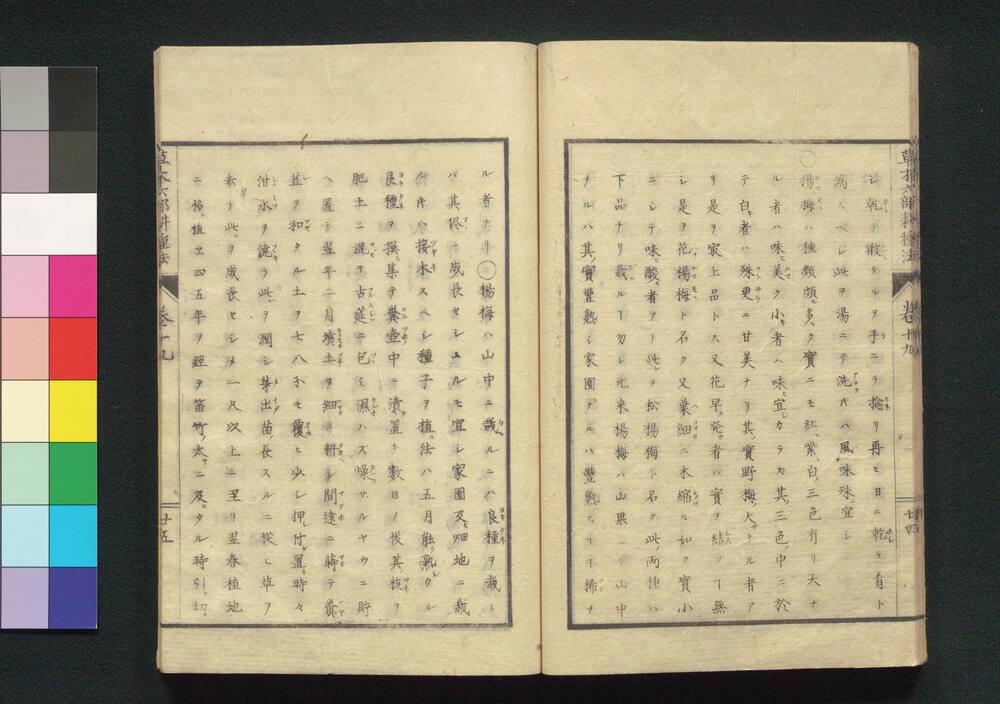 シ乾テ皺タルヲ手ニテ捻リ再ヒ日ニ乾テ看ト
為スベシ此ヲ湯ニテ洗ヘハ風味殊ニ宜シ
○楊梅ハ種類頗ル多ク實ニモ紅、紫、白、三色有リ大ナ
ル者ハ味美ク小キ者ハ味宜シカラス其三色ノ中ニ於
テ白キ者ハ殊更ニ甘美ナリ其實野梅ノ大サナル者ア
リ是ヲ家上品トス又花早ク發ク者ハ實ヲ結フ丁無
シ是ヲ花楊梅ト名ク又葉細ニ木縮ル如ク實小
ニシテ味酸キ者アリ此ヲ松楊梅ト名ク此両種ハ
下品ナリ栽ルコ勿レ元来楊梅ハ山果ニテ山中
ナルハ其實豐熟シ家園ナルハ豐熟スルヿ稀ナ
草木六部耕種法 巻十九 廿四
ル者ナリ○楊梅ハ山中ニ栽ルニハ良種ヲ栽レ
バ其侭ニ成長セシムルモ宜シ家園及ヒ畑地ニ栽
ルキハ接木スヘシ種子ヲ植ル法ハ五月能ク熟タル
良種ヲ撰ミ集テ糞壺中ニ漬置キ數日ノ後其核ヲ
肥土ニ混テ古莚ニ包ミ濕ハズ燥サルヤウニ貯
ヘ置テ翌年二月墳土ヲ細ニ耕シ間遠ニ蒔テ糞
苴ヲ和タル土ヲ七八分モ覆ヒ少シ押付置キ時々
泔水ヲ澆テ此ヲ潤シ芽出シ苗長スルニ從ヒ草ヲ
去テ此ヲ成長セシメ一尺以上ニ至リ翌春植地
ニ移シ植ヱ四五年ヲ經テ笛竹ノ太サニ及ヒタル時引切
草木六部耕種法 巻十九 廿五